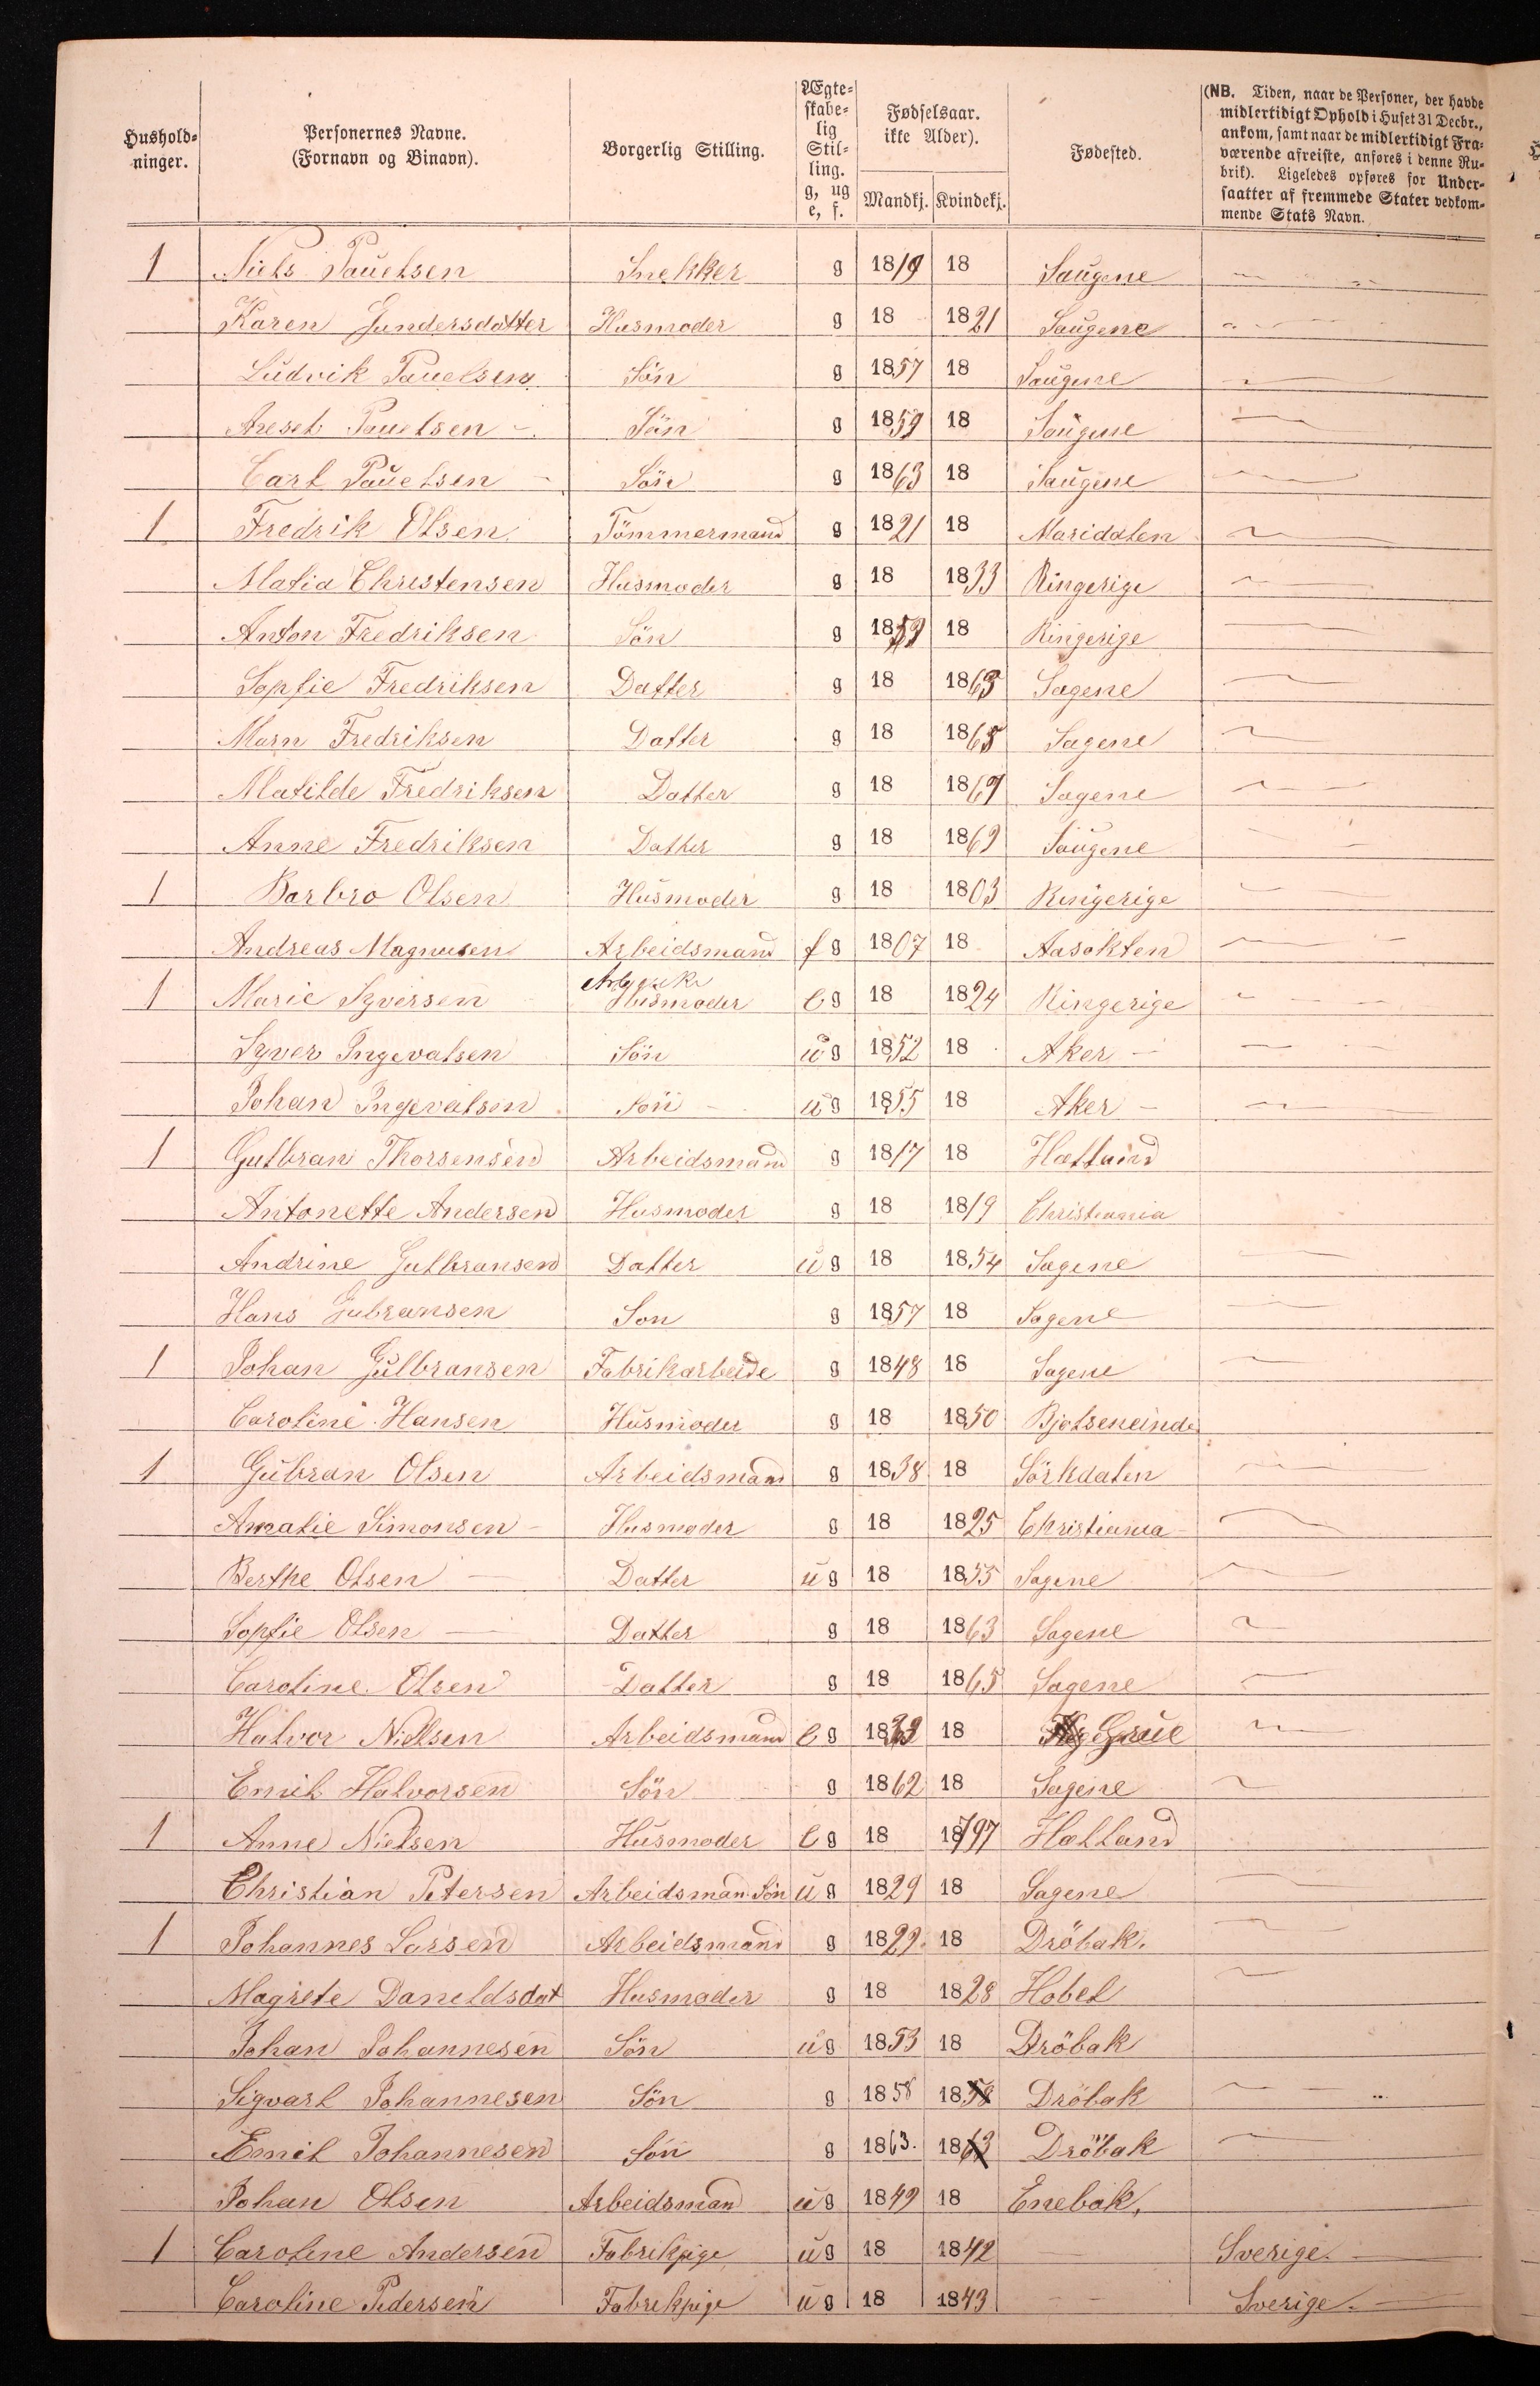 Hushold-
ninger.
Personernes Navne.
(Fornavn og Binavn).
Borgerlig Stilling.
Ægte-
skabe-
lig
Stil-
ling.
g, ug
e, f.
Fødselsaar.
ikke Alder).
Mandkj. Kvindekj.
Fødested.
(NB. Tiden, naar de Personer, der havde
midlertidigt Ophold i Huset 31 Decbr.,
ankom, samt naar de midlertidigt Fra-
værende afreiste, anføres i denne Ru-
brik). Ligeledes opføres for Under-
saatter af fremmede Stater vedkom-
mende Stats Navn.
1 Niels Pauelsen Snekker g 1819 18 Saugene
Karen Gundersdatter Husmoder g 18 1821 Saugene
Ludvik Pauelsen Sön g 1857 18 Saugene
Pauelsen Sön g 1859 18 Saugene
Carl Pauelsen Sön g 1863 18 Saugene
1 Fredrik Olsen Tömmermand g 1821 18 Maridalen
Matia Christensen Husmoder g 18 1833 Ringerige
Anton Fredriksen Sön g 1859 18 Ringerige
Sopfie Fredriksen Datter g 18 1863 Sagene
Marn Fredriksen Datter g 18 1865 Sagene
Matilde Fredriksen Datter g 18 1867 Sagene
Anne Fredriksen Datter g 18 1869 Saugene
1 Barbro Olsen Husmoder g 18 1803 Ringerige
Andreas Magnusen Arbeidsmand f g 1807 18
1 Marie Syversen Husmoder e g 18 1824 Ringerige
Syver Ingevalsen Sön ug 1852 18 Aker
Johan Ingevalsen Sön ug 1855 18 Aker
1 Gutbran Thorsensen Arbeidsmand g 1817 18
Antonette Andersen Husmoder g 18 1819 Christiania
Andrine Gutbransen Datter ug 18 1854 Sagene
Hans Gubransen Son g 1857 18 Sagene
1 Johan Gulbransen Fabrikarbeide g 1848 18 Sagene
Caroline Hansen Husmoder g 18 1850
1 Gubran Olsen Arbeidsmand g 1838 18 Sörkdalen
Amalie Simonsen Husmoder g 18 1825 Christiania
Berthe Olsen Datter ug 18 1855 Sagene
Sopfie Olsen Datter g 18 1863 Sagene
Caroline Olsen Datter g 18 1865 Sagene
Halvor Nielsen Arbeidsmand e g 18 18 Grue
Emil Halvorsen Sön g 1862 18 Sagene
1 Anne Nielsen Husmoder e g 18 1797 Hatland
Christian Petersen Arbeidsman Sön ug 1829 18 Sagene
1 Johannes Larsen Arbeidsmand g 1829 18 Dröbak.
Magrete Daneldsdat Husmoder g 18 1828 Hobel
Johan Johannesen Sön ug 1853 18 Dröbak
Sigvart Johannesen Sön g 1858 1858 Dröbak
Emil Johannesen Sön g 1863. 1863 Dröbak
Johan Olsen Arbeidsmand ug 1849 18 Enebak.
1 Caroline Andersen Fabrikpige ug 18 1842 Sverige.
Caroline Pedersen Fabrekpige ug 18 1843 Sverige.